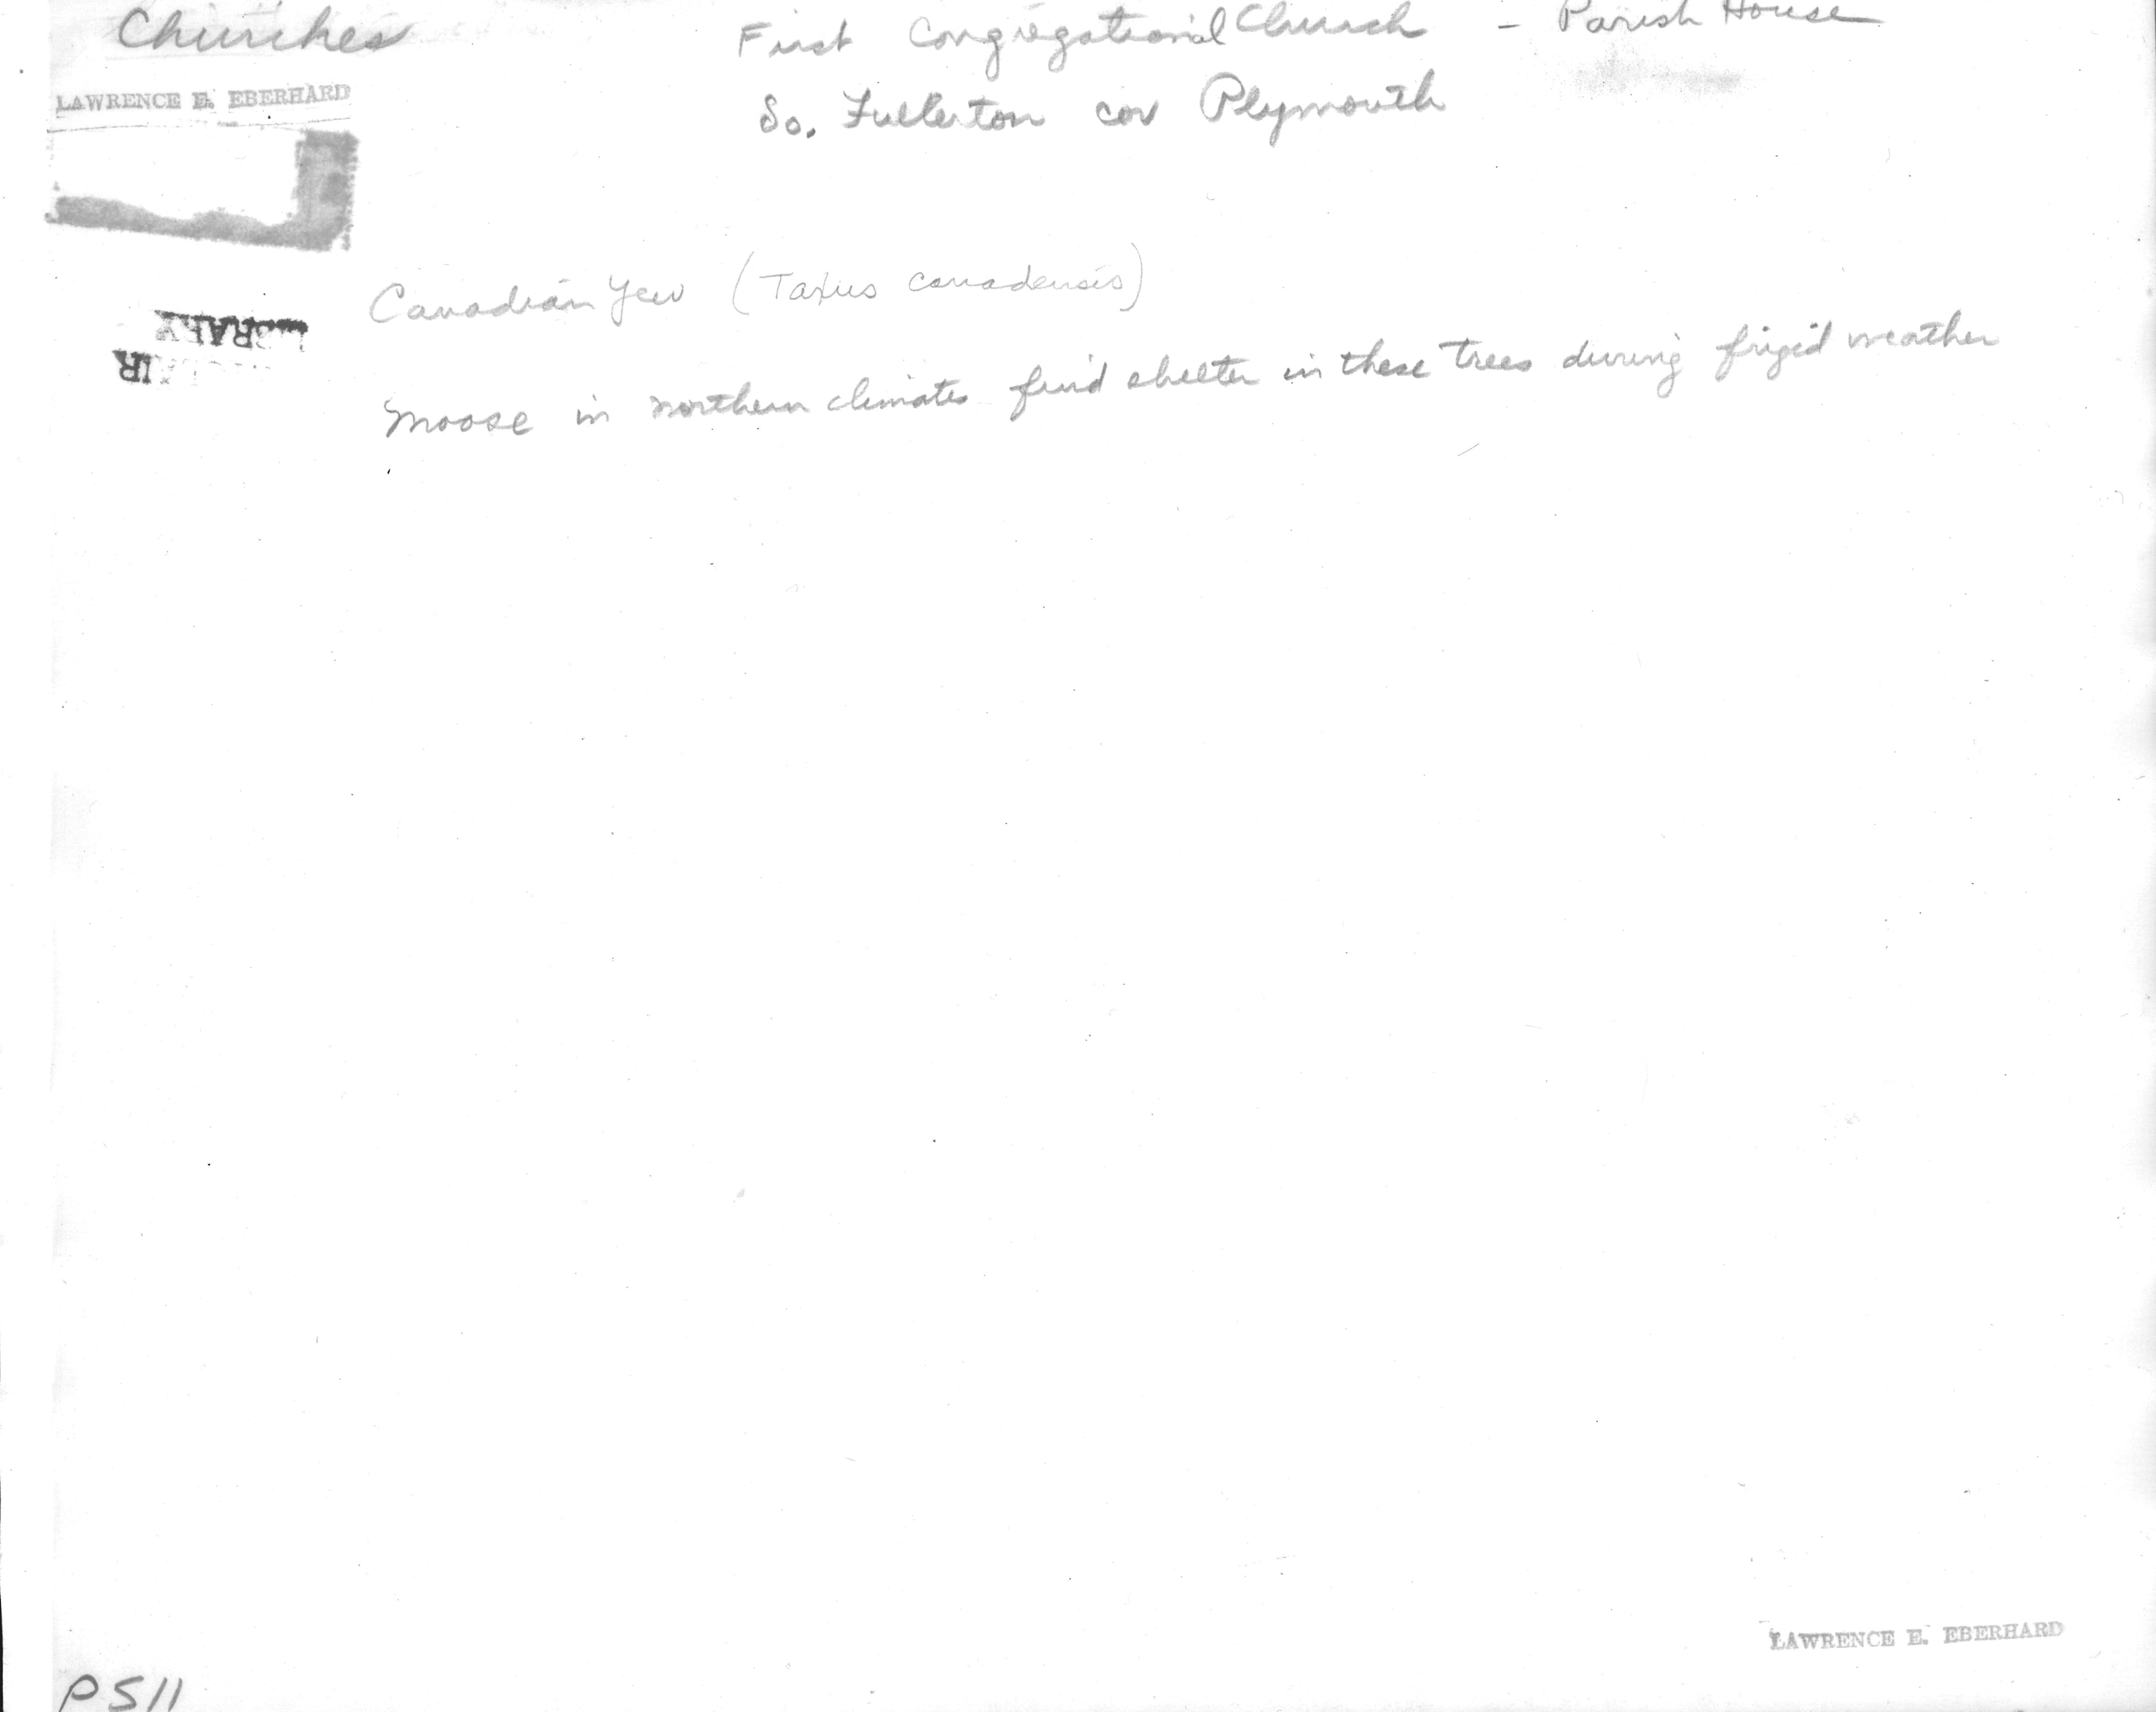 Churches
First Congregational Church - Parish House
So. Fullerton cor Plymouth
LAWRENCE E. EBERHARD
Canadian Yew (Taxus canadensis)
Moose in northern climates find shelter in these trees during frigid weather
LAWRENCE E. EBERHARD
P511